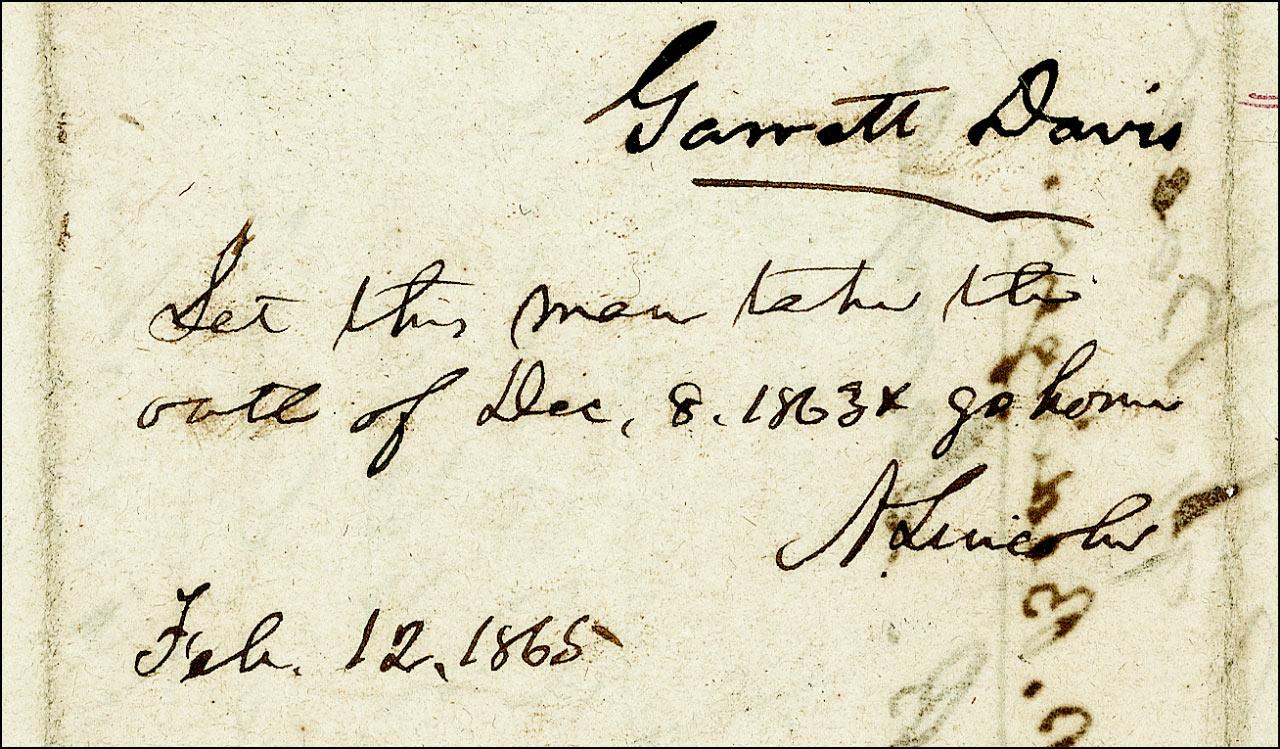 Garrett Davis
Let this man take the
oath of Dec, 8. 1863 & go home
A. Lincoln
Feb. 12, 1865